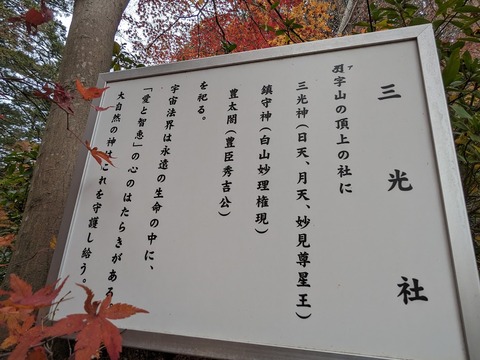 三光社
ア
字山の頂上の社に
三光神(日天、月天、妙見尊星王)
鎮守神(白山妙理権現)
豊太閤(豊臣秀吉公)
を祀る。
宇宙法界は永遠の生命の中に、
「愛と智恵」の心のはたらきがある
大自然の神はこれを守護し給う。